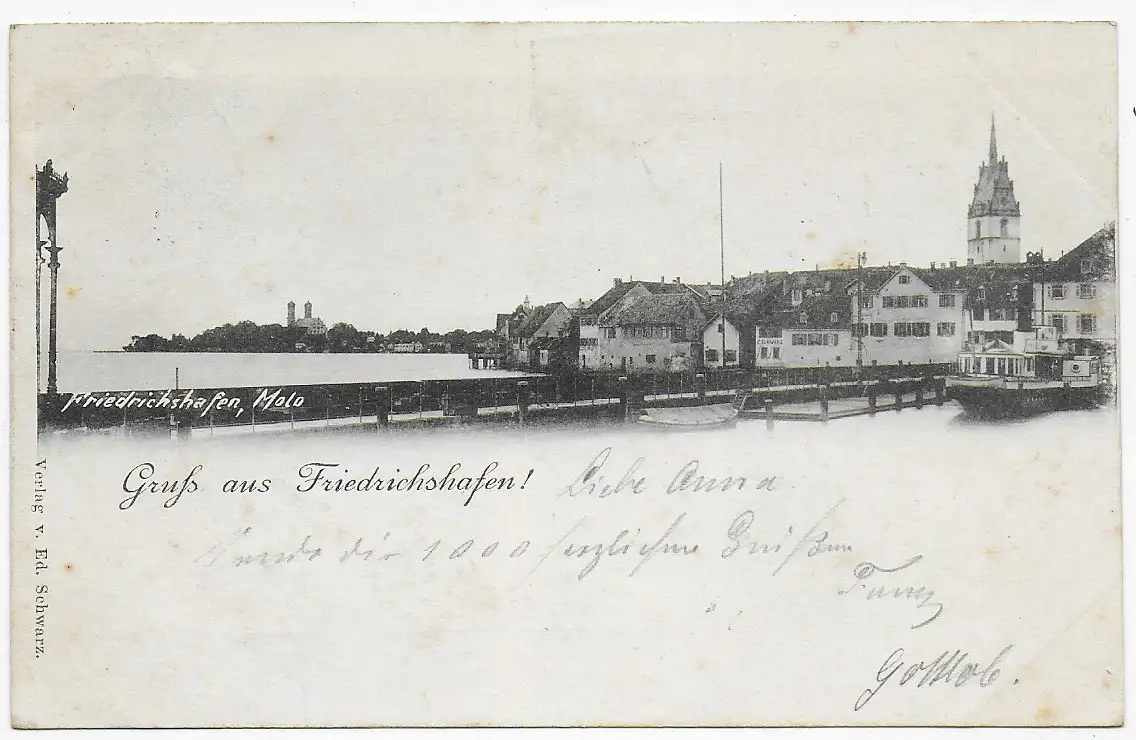 Friedrichshafen, Molo
Gruß aus Friedrichshafen!
Liebe Anna.
Sende dir 1000 herzliche Grüße
Gottlob.
Verlag v. Ed. Schwarz.